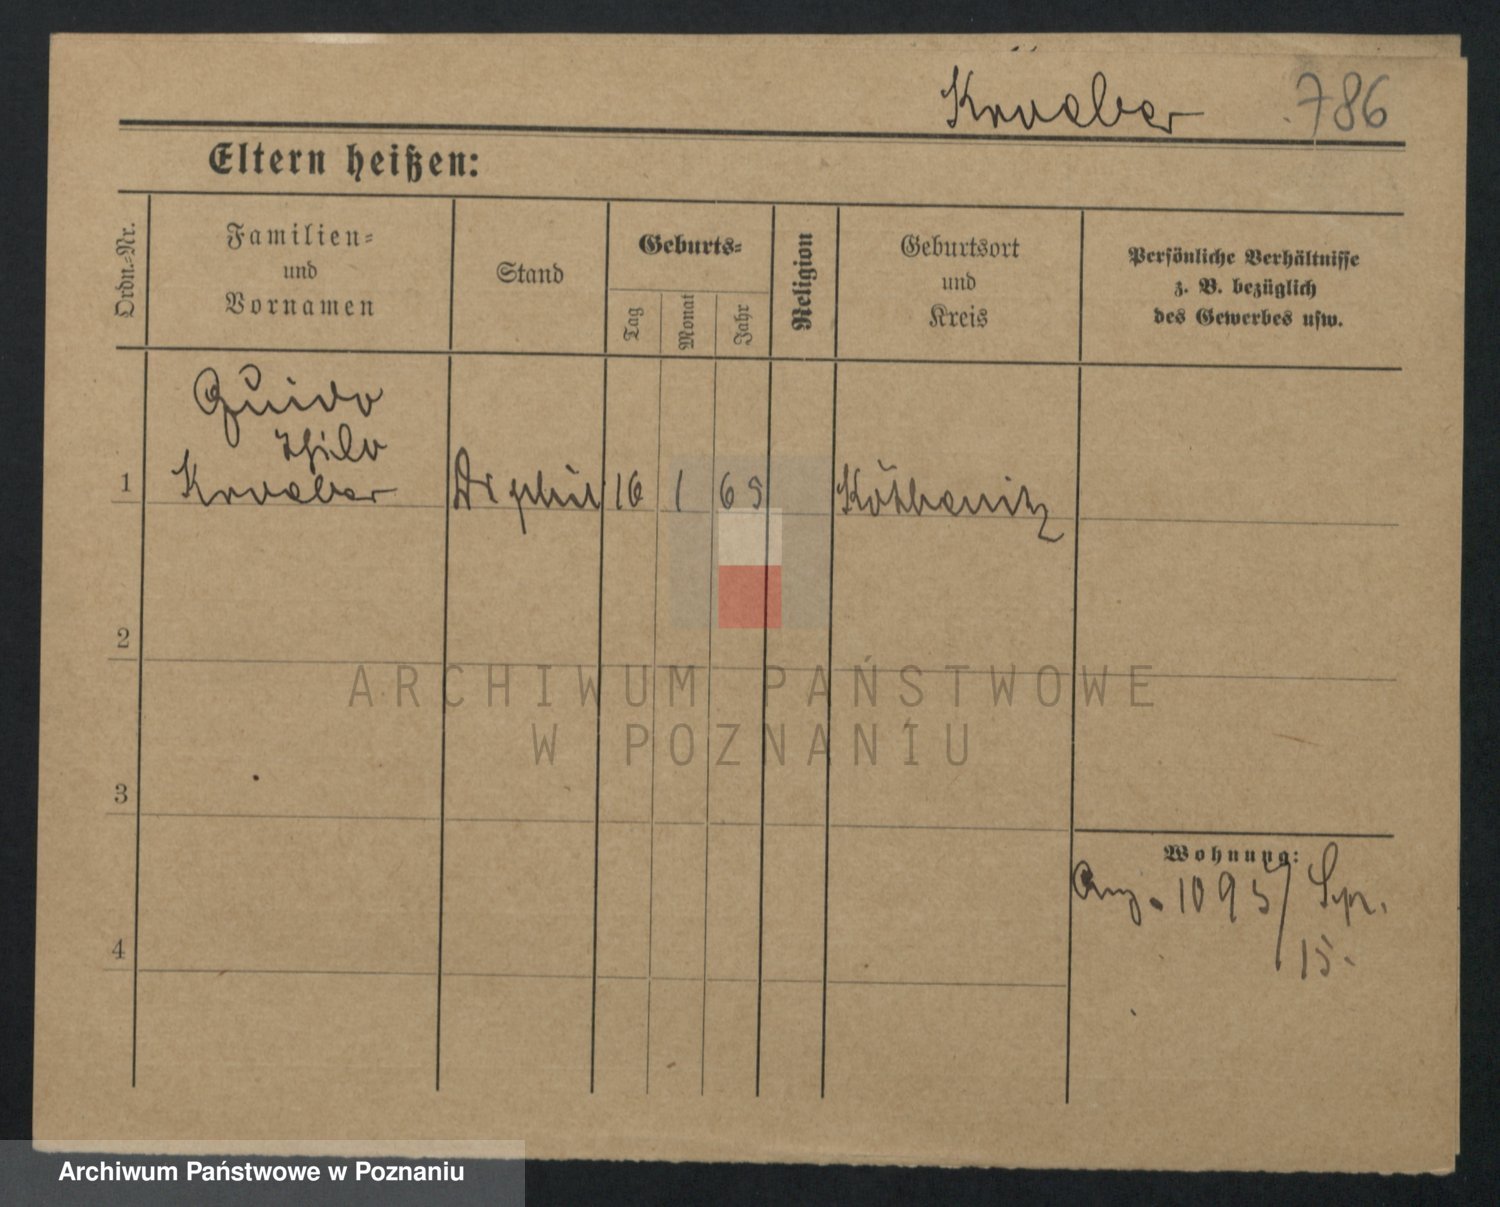 Kroeber 786
Eltern heißen:
Ordn.-Nr.
Familien-
und
Vornamen
Stand
Geburts-
Tag
Monat
Jahr
Religion
Geburtsort
und
Kreis
Persönliche Verhältnisse
z. B. bezüglich
des Gewerbes usw.
Guido
Thilo
1 Kroeber Dr phil 16 1 65 Köthenitz
2
3
4
Wohnung:
1095/
15.
ARCHIWUM PAŃSTWOWE
W POZNANIU
Archiwum Państwowe w Poznaniu